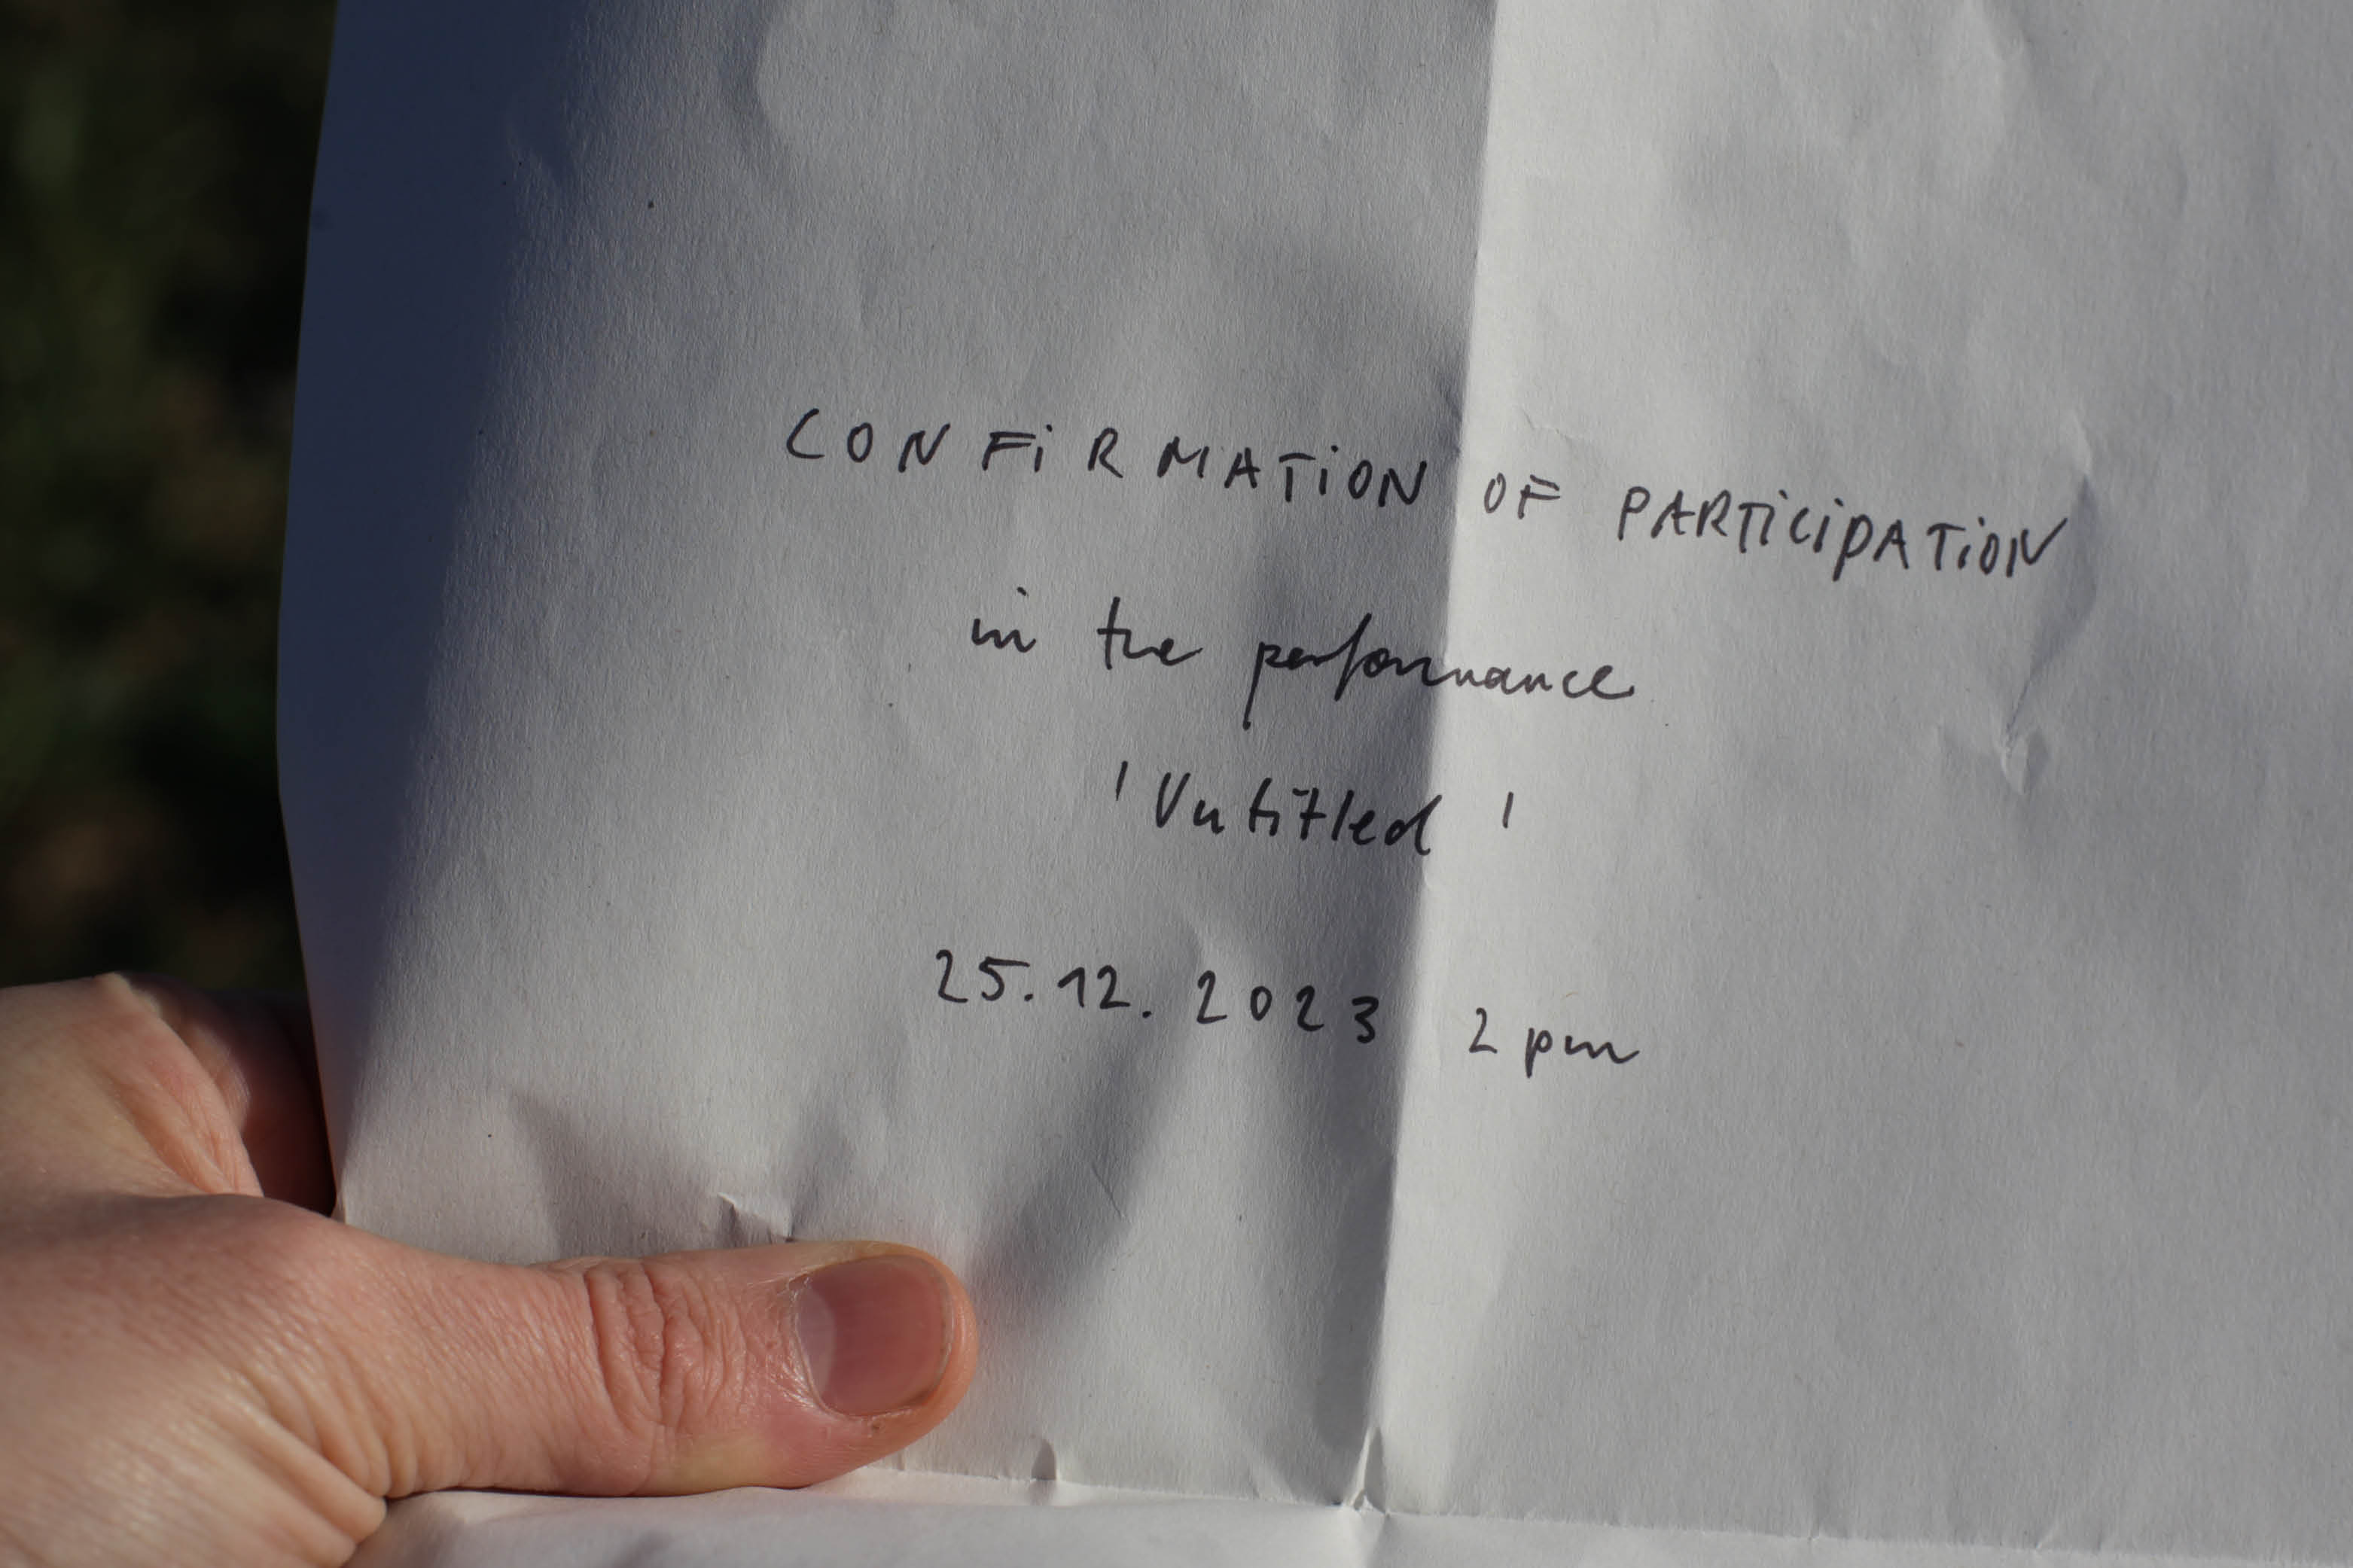 CONFIRMATION OF PARTICIPATION
in the performance
'Untitled'
25.12.2023 2 pm